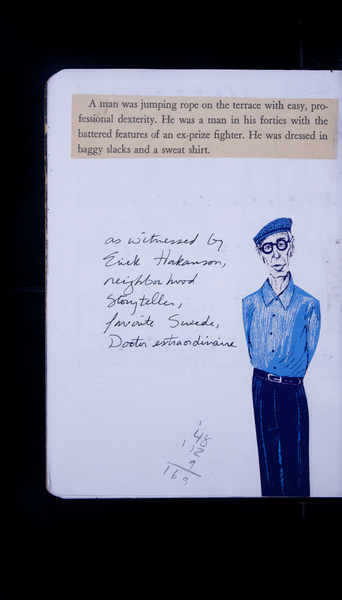 A man was jumping rope on the terrace with easy, pro-
fessional dexterity. He was a man in his forties with the
battered features of an ex-prize fighter. He was dressed in
baggy slacks and a sweat shirt.
as witnessed by
Erick Hakanson,
neighborhood
Storyteller,
favorite Swede,
Doctor extraordinaire
1
48
1 12
9
169